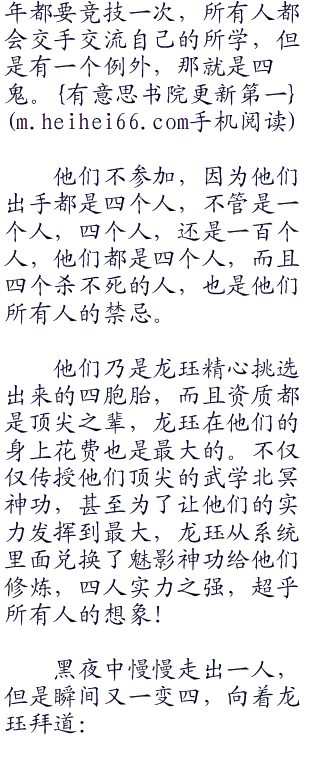 年都要竞技一次，所有人都
会交手交流自己的所学，但
是有一个例外，那就是四
鬼。{有意思书院更新第一}
(m.heihei66.com手机阅读)
他们不参加，因为他们
出手都是四个人，不管是一
个人，四个人，还是一百个
人，他们都是四个人，而且
四个杀不死的人，也是他们
所有人的禁忌。
他们乃是龙珏精心挑选
出来的四胞胎，而且资质都
是顶尖之辈，龙珏在他们的
身上花费也是最大的。不仅
仅传授他们顶尖的武学北冥
神功，甚至为了让他们的实
力发挥到最大，龙珏从系统
里面兑换了魅影神功给他们
修炼，四人实力之强，超乎
所有人的想象！
黑夜中慢慢走出一人，
但是瞬间又一变四，向着龙
珏拜道：